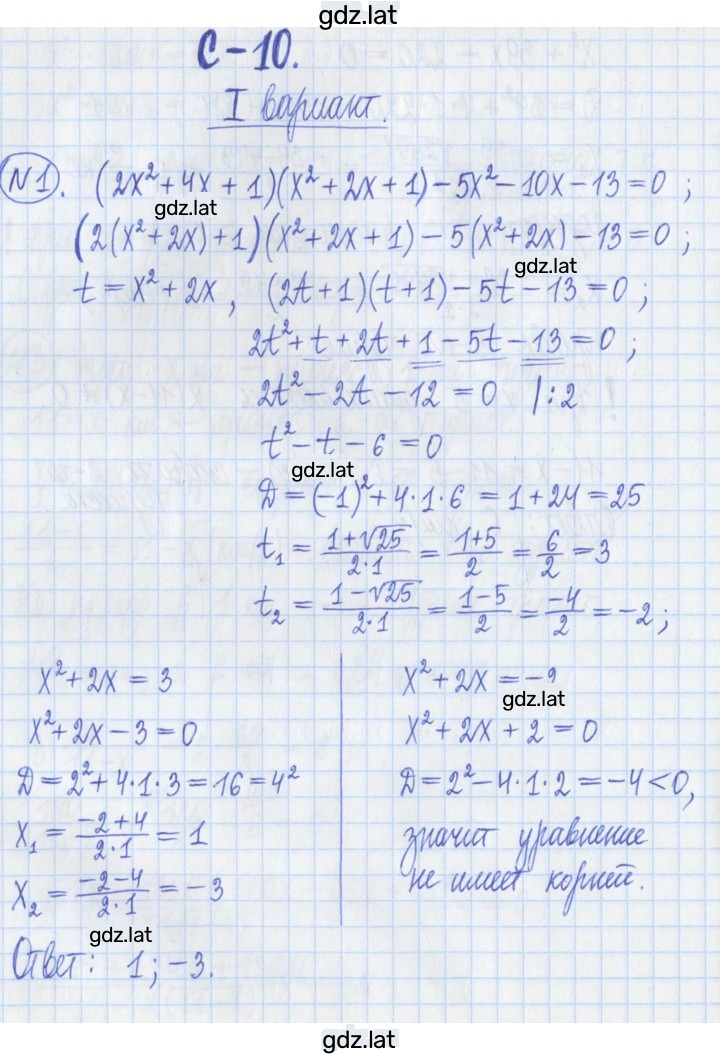 gdz.lat
С-10.
I вариант.
№1. (2x²+4x+1)(x²+2x+1)-5x²-10x-13=0 ;
gdz.lat
(2(x²+2x)+1)(x²+2x+1)-5(x²+2x)-13=0 ;
gdz.lat
t=x²+2x , (2t+1)(t+1)-5t-13=0 ;
2t²+t+2t+1-5t-13=0 ;
2t²-2t-12=0 |:2
t²-t-6=0
gdz.lat
D=(-1)²+4·1·6=1+24=25
t₁ = (1+√25)/(2·1) = (1+5)/2 = 6/2 = 3
t₂ = (1-√25)/(2·1) = (1-5)/2 = -4/2 = -2 ;
x²+2x=3
x²+2x-3=0
D=2²+4·1·3=16=4²
x₁ = (-2+4)/(2·1) = 1
x₂ = (-2-4)/(2·1) = -3
x²+2x=-2
gdz.lat
x²+2x+2=0
D=2²-4·1·2=-4<0,
значит уравнение
не имеет корней.
gdz.lat
Ответ: 1; -3.
gdz.lat